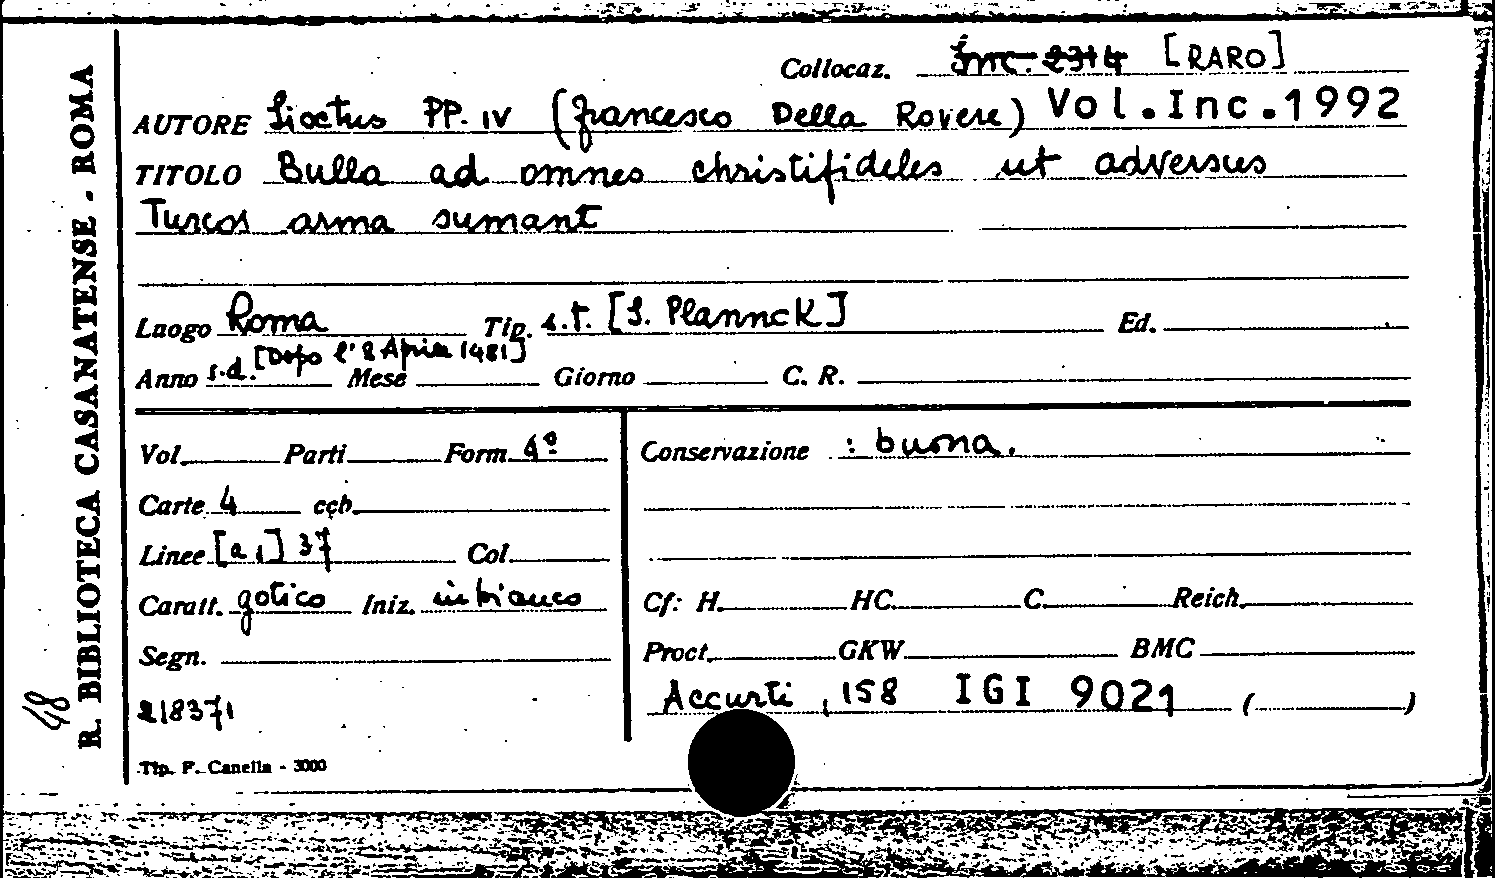 R. BIBLIOTECA CASANATENSE - ROMA
48
Collocaz. Inc. 2314 [RARO]
AUTORE Sixtus PP. IV (Francesco Della Rovere) Vol.Inc.1992
TITOLO Bulla ad omnes christifideles ut adversus
Turcos arma sumant
Luogo Roma Tip. s.t. [S. Plannck] Ed.
Anno s.d. [Dopo l'8 Aprile 1481] Mese Giorno C. R.
Vol. Parti Form 4º
Carte 4 ccb.
Linee [a1] 37 Col.
Caratt. gotico Iniz. in bianco
Segn.
218371
Tip. F. Canella - 3000
Conservazione : buona.
Cf: H. HC. C. Reich.
Proct. GKW. BMC
Accurti, 158 IGI 9021 ( )